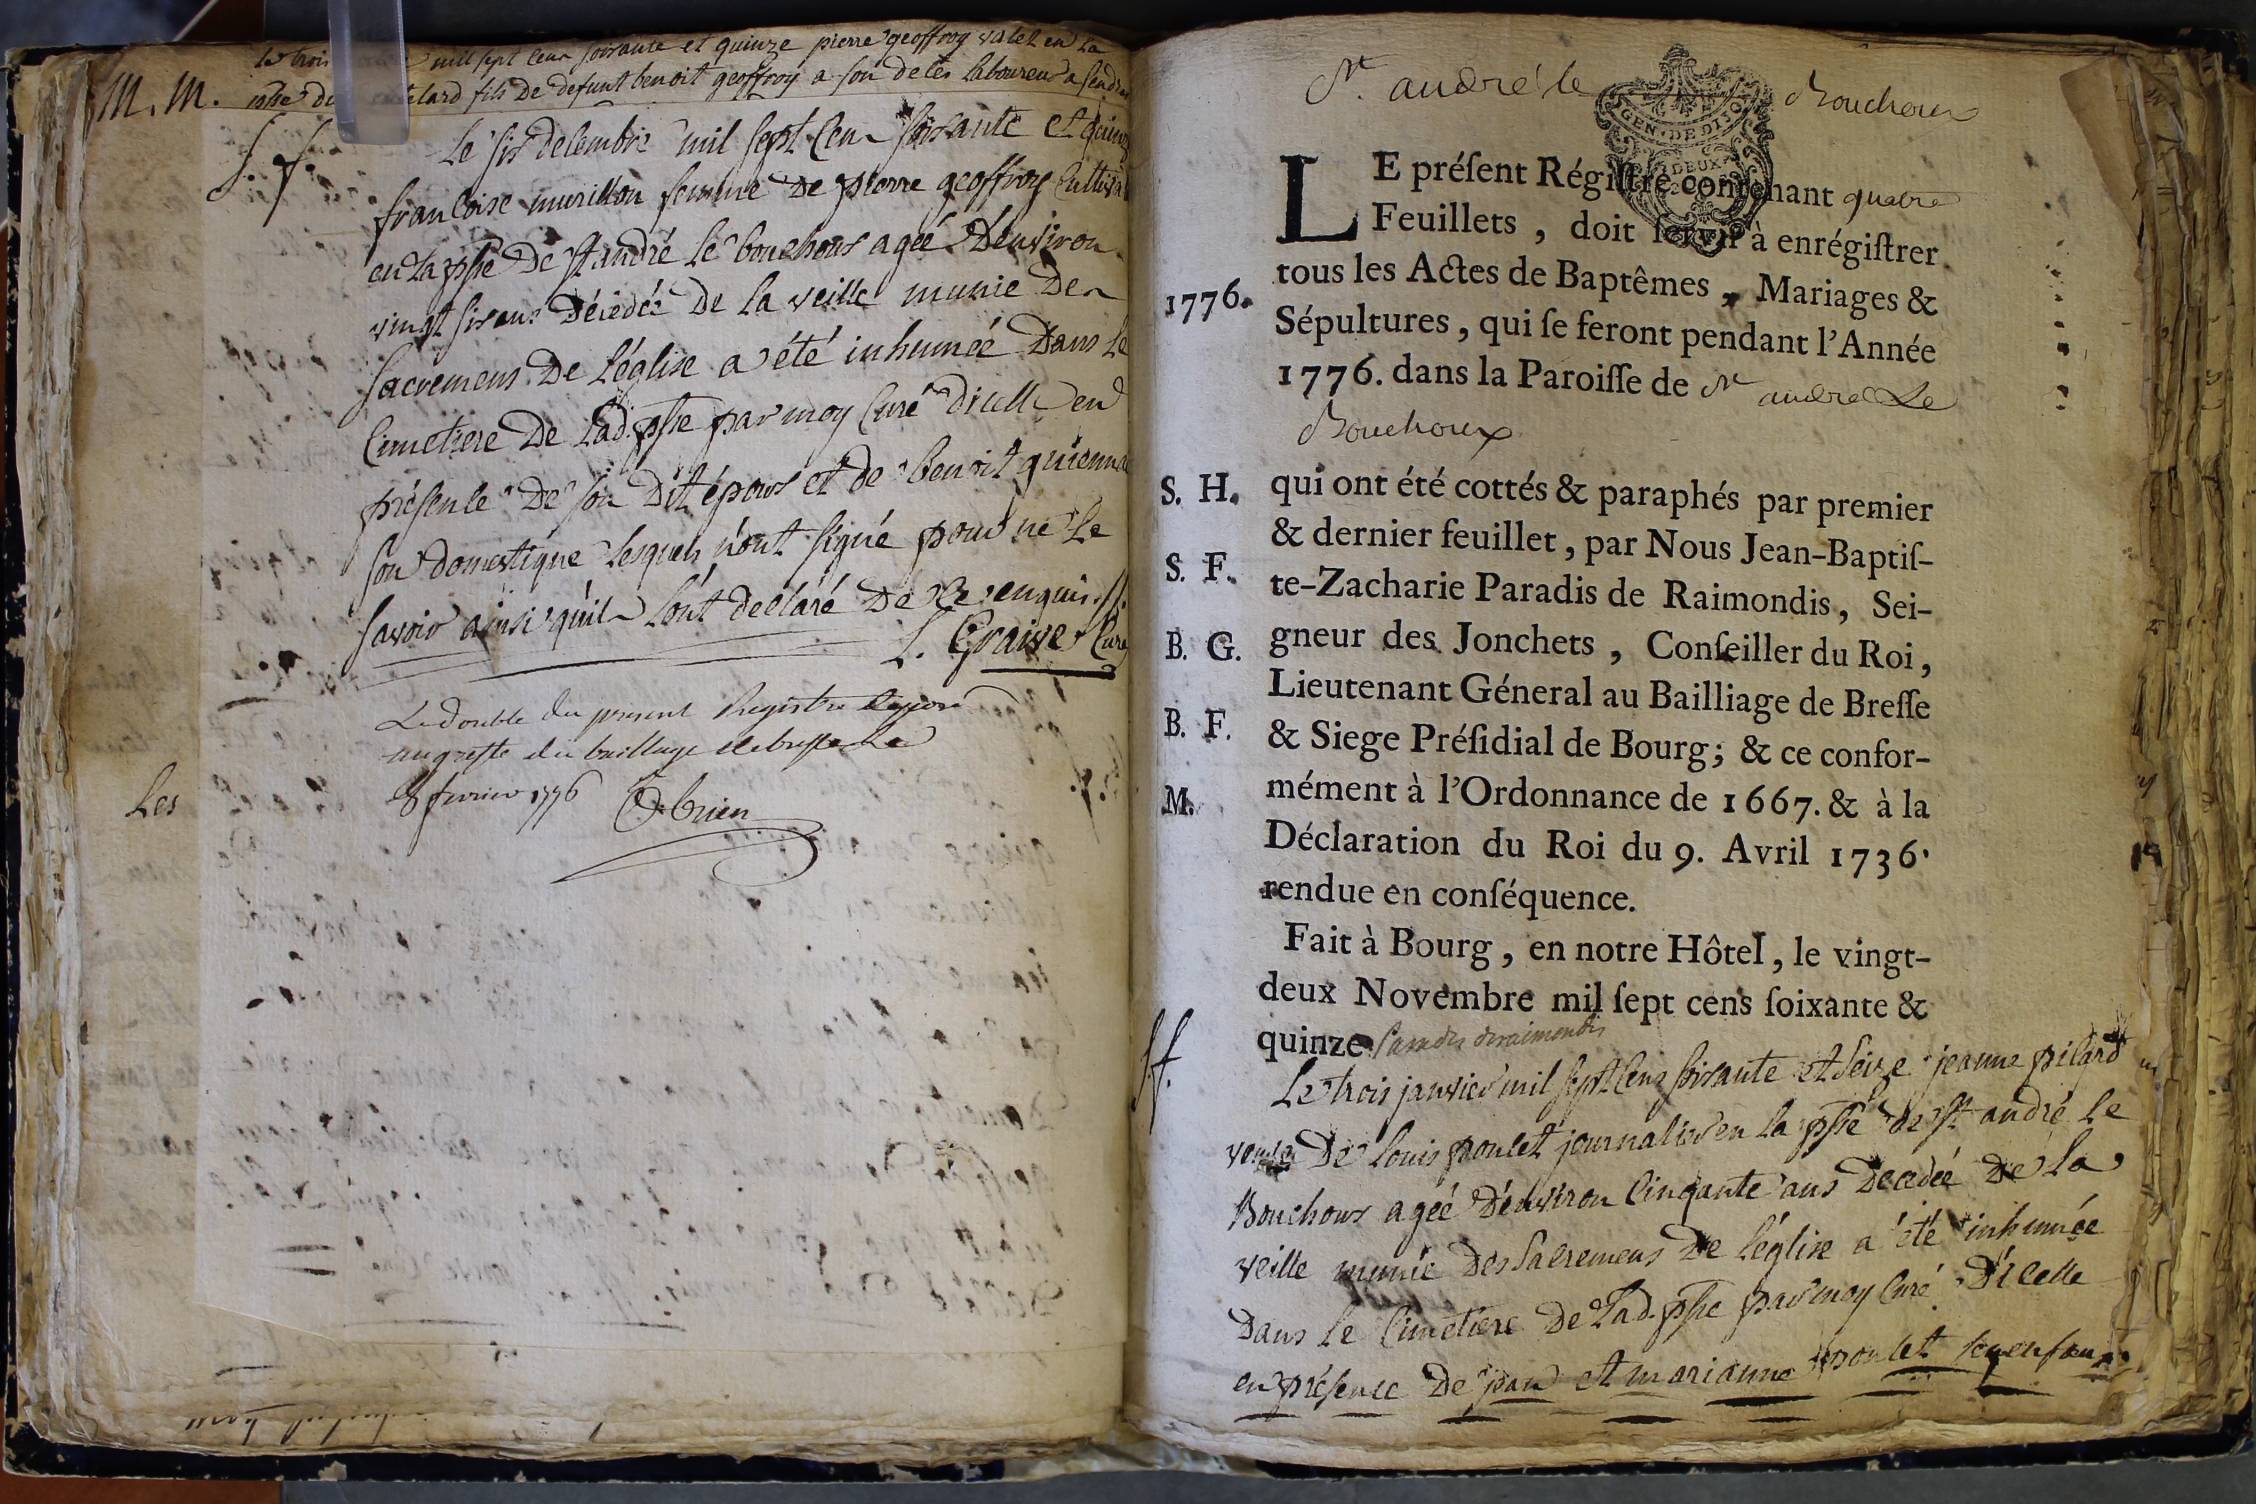 le trois mill sept cens soixante et quinze pierre geoffroy valet en la
M. M. psse du chatelard fils de defunt benoit geoffroy a son deces laboureur a
S. f. Le six decembre mil sept cens soixante et quinze
francoise murillon femme de pierre geoffroy
en la psse de st andré le bouchoux ageé denviron
vingt six ans décédée de la veille munie des
sacremens de l'église a été inhumeé dans le
cimetiere de lad. psse par moy curé dicelle en
présence de son dit époux et de benoit
son domestique lesquels n'ont signé pour ne le
savoir ainsi quils l'ont declaré de ce enquis ./.
L. Graive Curé
Le double du present Registre deposé
au greffe du bailliage de bresse le
8 fevrier 1776 Obrien
Les
St. andré le Bouchoux
GEN. DE DIJO
DEUX
LE préſent Régiſtre contenant quatre
Feuillets, doit ſervir à enrégiſtrer
tous les Actes de Baptêmes, Mariages &
1776. Sépultures, qui ſe feront pendant l'Année
1776. dans la Paroiſſe de St andré Le
Bouchoux
S. H. qui ont été cottés & paraphés par premier
& dernier feuillet, par Nous Jean-Baptiſ-
S. F. te-Zacharie Paradis de Raimondis, Sei-
B. G. gneur des Jonchets, Conſeiller du Roi,
Lieutenant Géneral au Bailliage de Breſſe
B. F. & Siege Préſidial de Bourg; & ce confor-
M. mément à l'Ordonnance de 1667. & à la
Déclaration du Roi du 9. Avril 1736.
rendue en conſéquence.
Fait à Bourg, en notre Hôtel, le vingt-
deux Novembre mil ſept cens ſoixante &
quinze. Paradis deraimondis
S. f. Le trois janvier mil sept cens soixante et seize jeanne pilard
veuve de louis poulet journalier en la psse de st andré le
Bouchoux ageé d'environ cinqante ans decedeé de la
veille munie des sacremens de l'église a été inhumée
dans le cimetiere de lad. psse par moy curé dicelle
en présence de et marianne poulet ses enfans